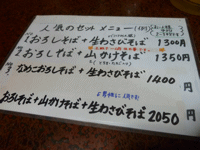 人気のセット メニュー
おろしそば + 生わさびそば 1300円
おろしそば + 山かけそば 1350円
なめこおろしそば + 生わさびそば 1400円
おろしそば + 山かけそば + 生わさびそば 2050円